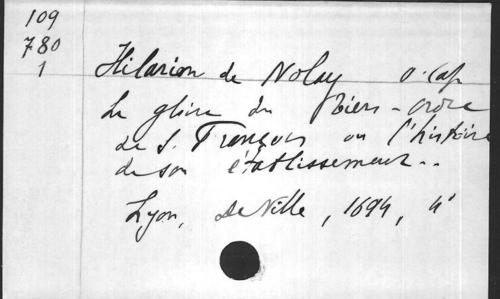 109
780
1
Hilarion de Nolay o. cap
La gloire du Tiers-ordre
de S. François ou l'histoire
de son établissement..
Lyon, De Ville, 1694, 4°